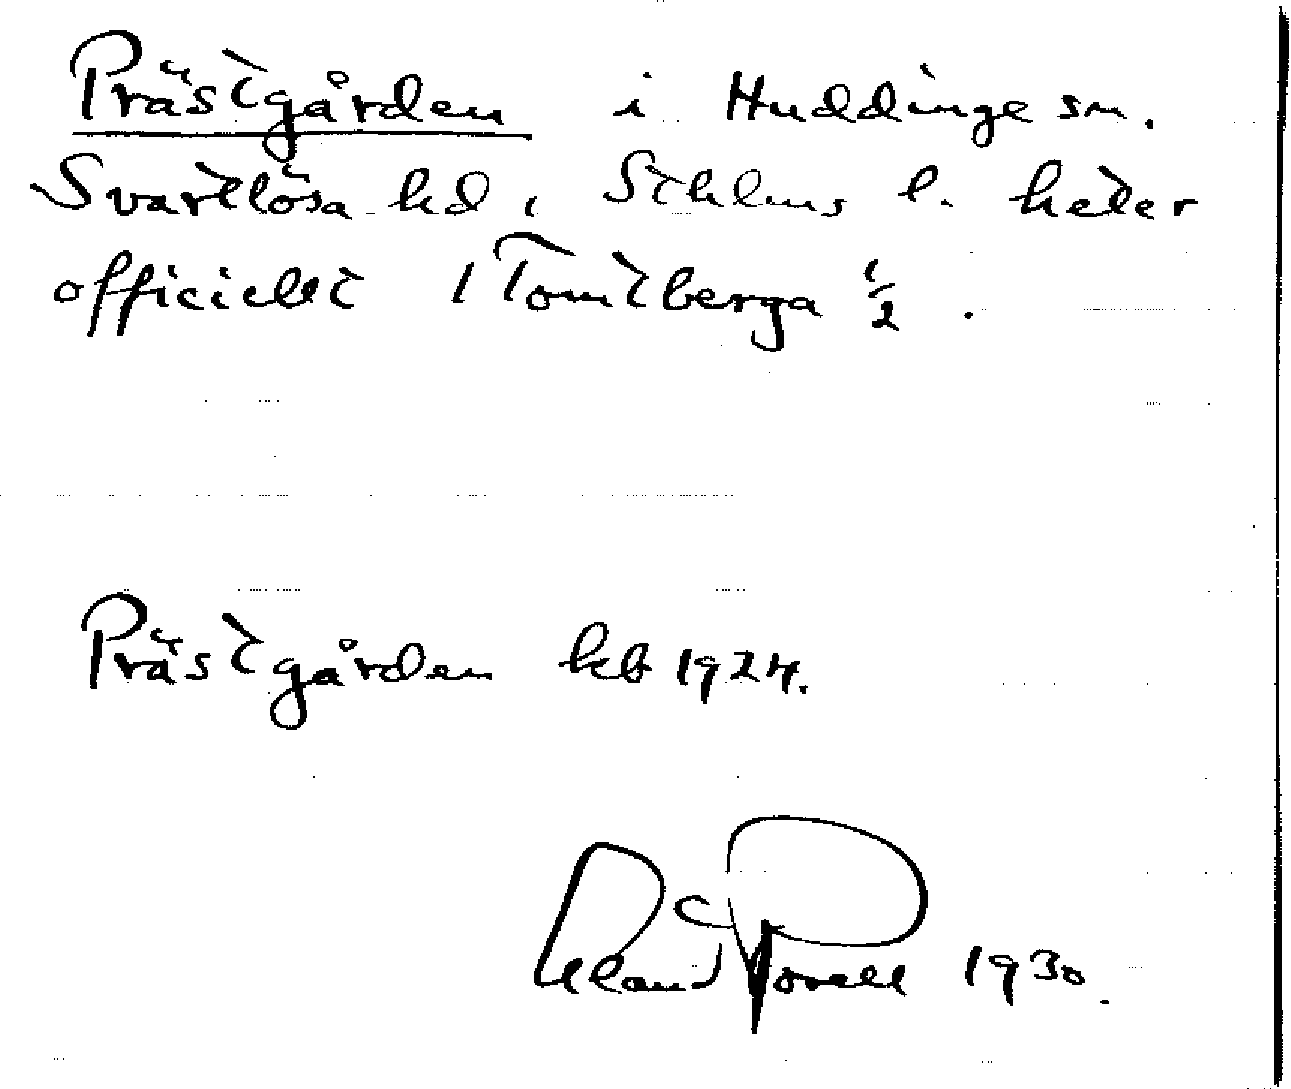 Prästgården i Huddinge sn.
Svartlösa hd, Sthlms l. heter
officiellt 1 Tomtberga ½.
Prästgården kb 1924.
1930.